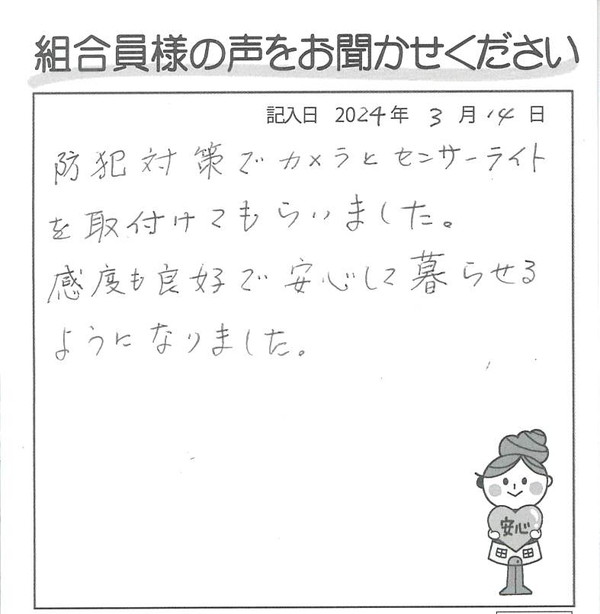 組合員様の声をお聞かせください
記入日 2024年 3月14日
防犯対策でカメラとセンサーライト
を取付けてもらいました。
感度も良好で安心して暮らせる
ようになりました。
安心